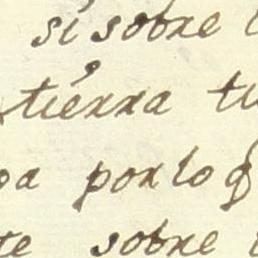 si sobre
tierra
por lo q
sobre